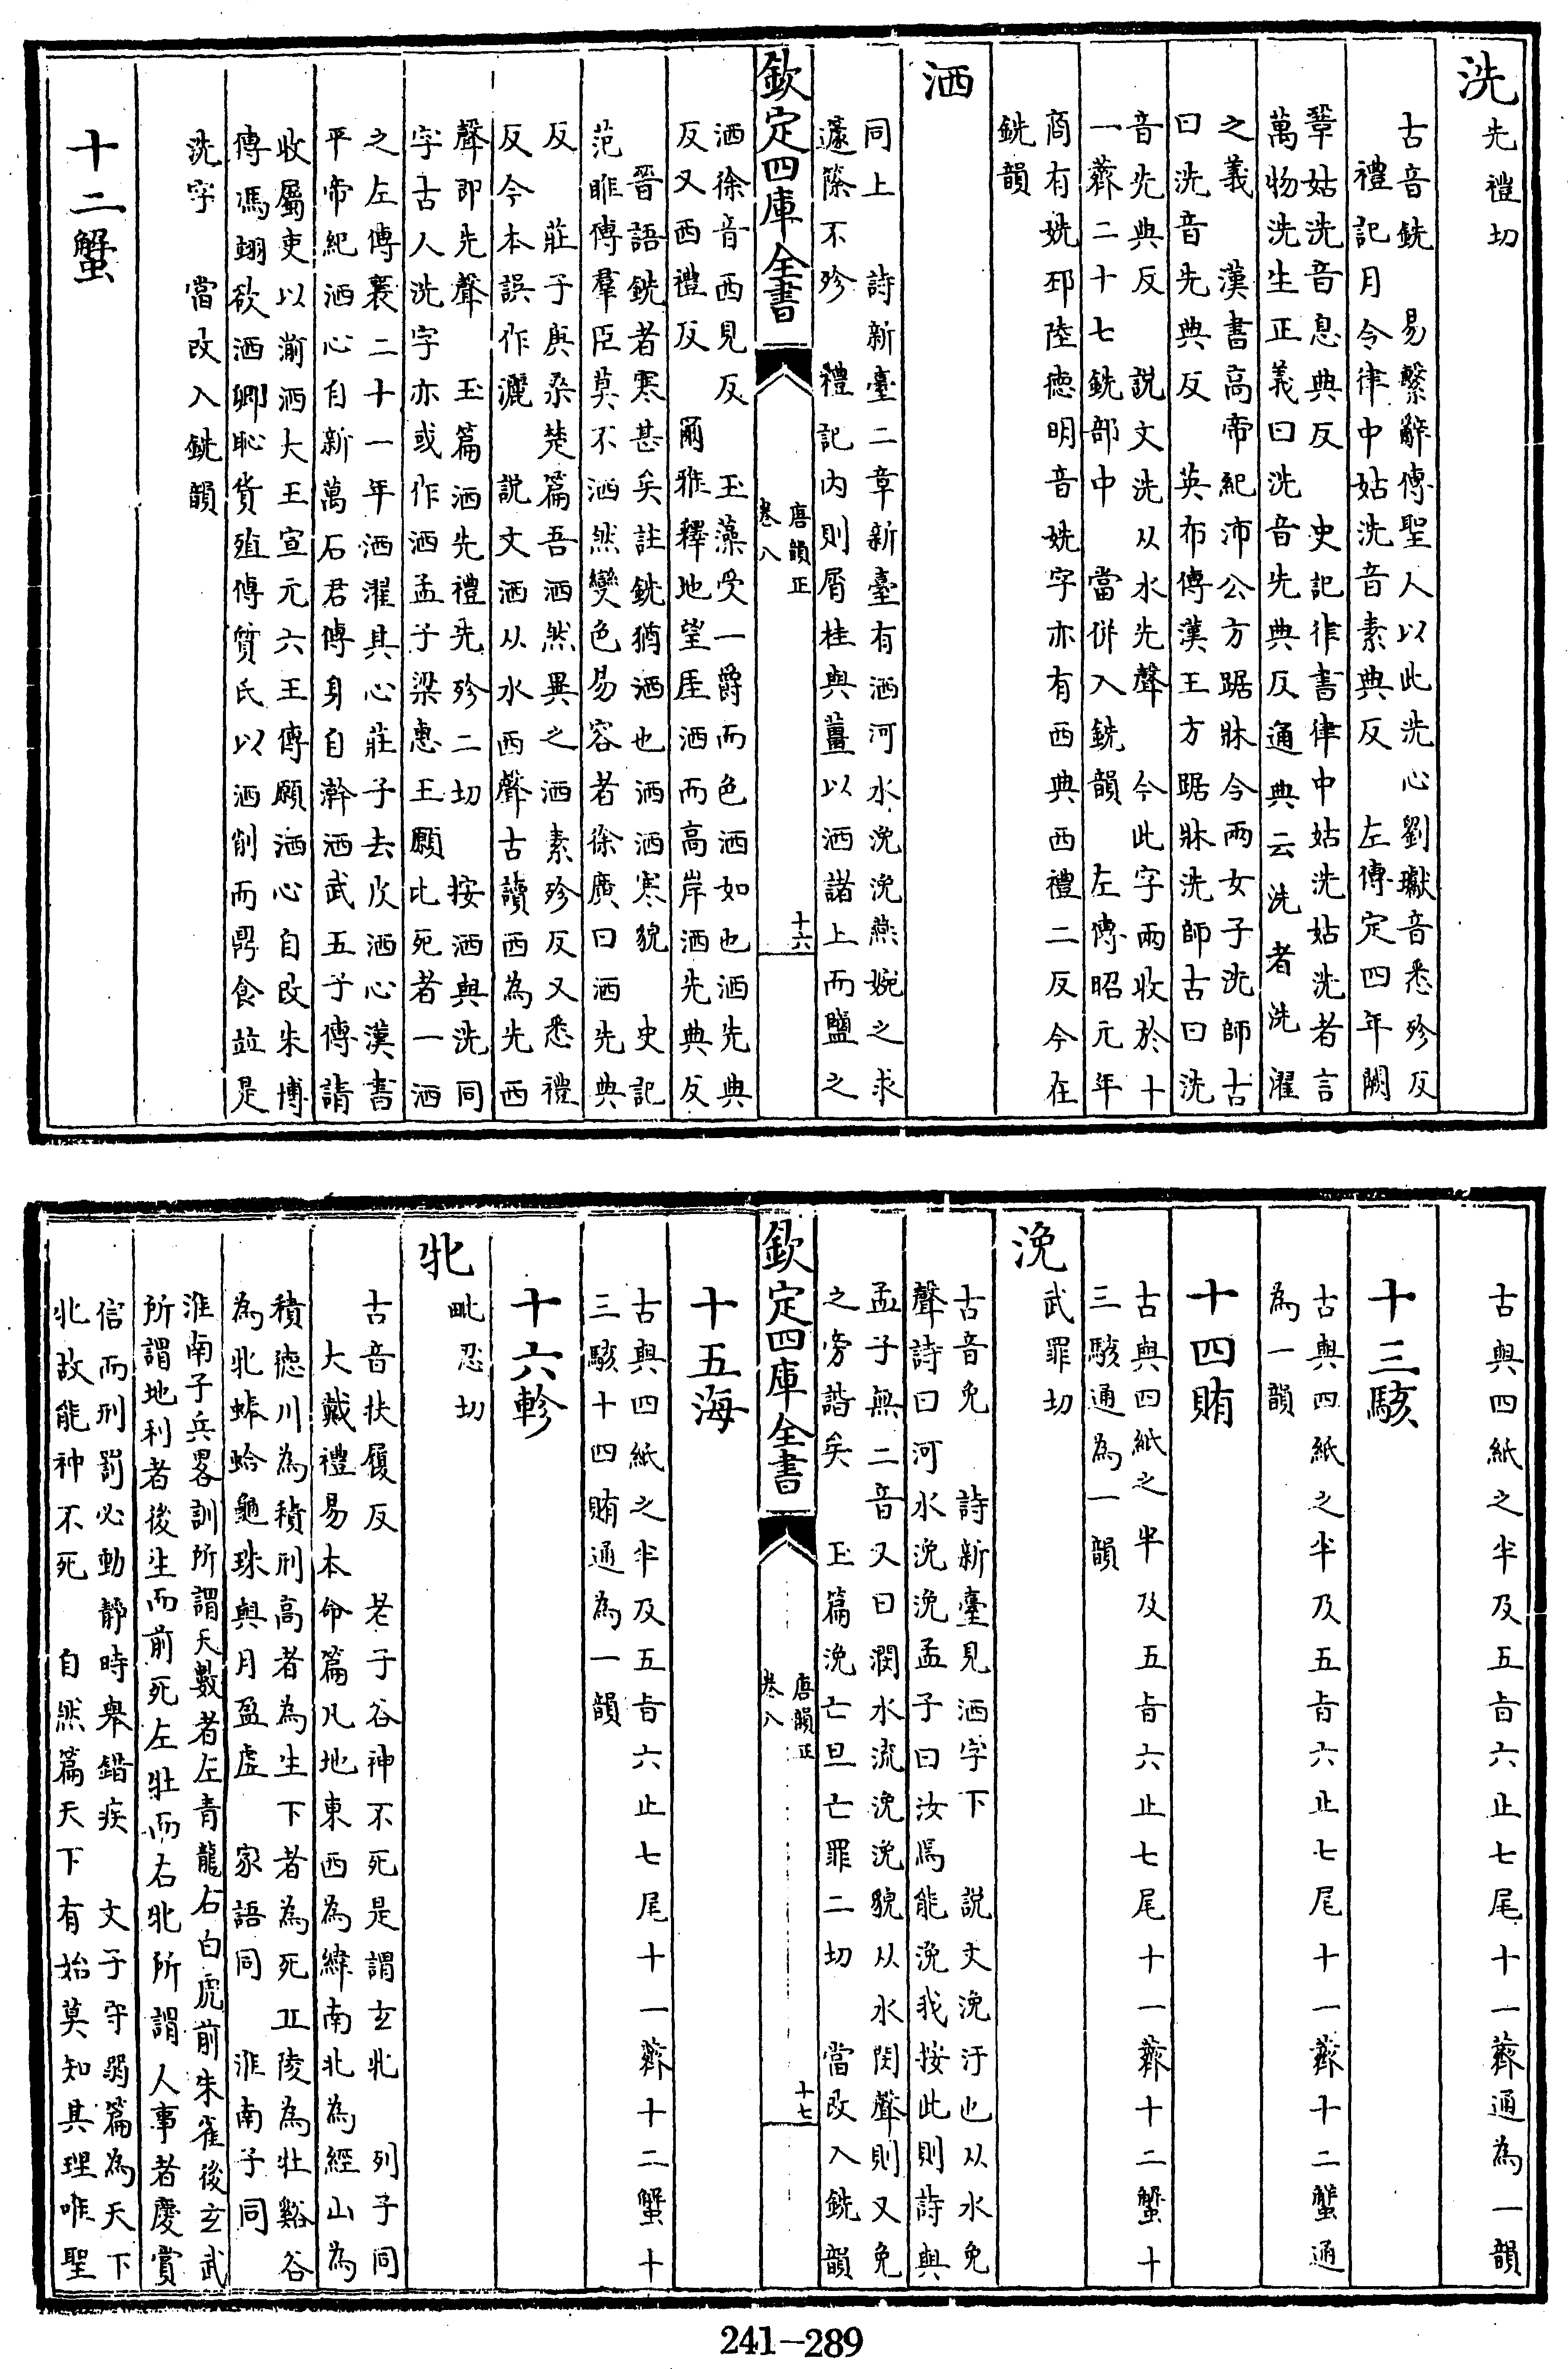 洗先禮切
古音銑　易繫辭傳聖人以此洗心劉瓛音悉殄反
禮記月令律中姑洗音素典反　左傳定四年闕
鞏姑洗音息典反　史記律書律中姑洗姑洗者言
萬物洗生正義曰洗音先典反通典云洗者洗濯
之義　漢書高帝紀沛公方踞牀令兩女子洗師古
曰洗音先典反　英布傳漢王方踞牀洗師古曰洗
音先典反　說文洗从水先聲　今此字兩收於十
一薺二十七銑部中　當併入銑韻　左傳昭元年
商有姺邳陸德明音姺字亦有西典西禮二反今在
銑韻
洒
同上　詩新臺二章新臺有洒河水浼浼燕婉之求
蘧篨不殄　禮記內則屑桂與薑以洒諸上而鹽之
欽定四庫全書　唐韻正　卷八　十六
洒徐音西見反　玉藻受一爵而色洒如也洒先典
反又西禮反　爾雅釋地望厓洒而高岸洒先典反
晉語銑者寒甚矣註銑猶洒也洒洒寒貌　史記
范雎傳羣臣莫不洒然變色易容者徐廣曰洒先典
反　莊子庚桑楚篇吾洒然異之洒素殄反又悉禮
反今本誤作灑　說文洒从水西聲古讀西為先西
聲即先聲　玉篇洒先禮先殄二切　按洒與洗同
字古人洗字亦或作洒孟子梁惠王願比死者一洒
之左傳襄二十一年洒濯其心莊子去皮洒心漢書
平帝紀洒心自新萬石君傳身自澣洒武五子傳請
收屬吏以湔洒大王宣元六王傳願洒心自改朱博
傳馮翊欲洒卿恥貨殖傳質氏以洒削而鼎食竝是
洗字　當改入銑韻
十二蟹
古與四紙之半及五旨六止七尾十一薺通為一韻
十三駭
古與四紙之半及五旨六止七尾十一薺十二蟹通
為一韻
十四賄
古與四紙之半及五旨六止七尾十一薺十二蟹十
三駭通為一韻
浼武罪切
古音免　詩新臺見洒字下　說文浼汙也从水免
聲詩曰河水浼浼孟子曰汝焉能浼我按此則詩與
孟子無二音又曰潤水流浼浼貌从水閔聲則又免
之旁諧矣　玉篇浼亡旦亡罪二切　當改入銑韻
欽定四庫全書　唐韻正　卷八　十七
十五海
古與四紙之半及五旨六止七尾十一薺十二蟹十
三駭十四賄通為一韻
十六軫
牝毗忍切
古音扶履反　老子谷神不死是謂玄牝　列子同
大戴禮易本命篇凡地東西為緯南北為經山為
積德川為積刑高者為生下者為死丘陵為牡谿谷
為牝蜯蛤龜珠與月盈虛　家語同　淮南子同
淮南子兵畧訓所謂天數者左青龍右白虎前朱雀後玄武
所謂地利者後生而前死左牡而右牝所謂人事者慶賞
信而刑罰必動靜時舉錯疾　文子守弱篇為天下
牝故能神不死　自然篇天下有始莫知其理唯聖
241-289